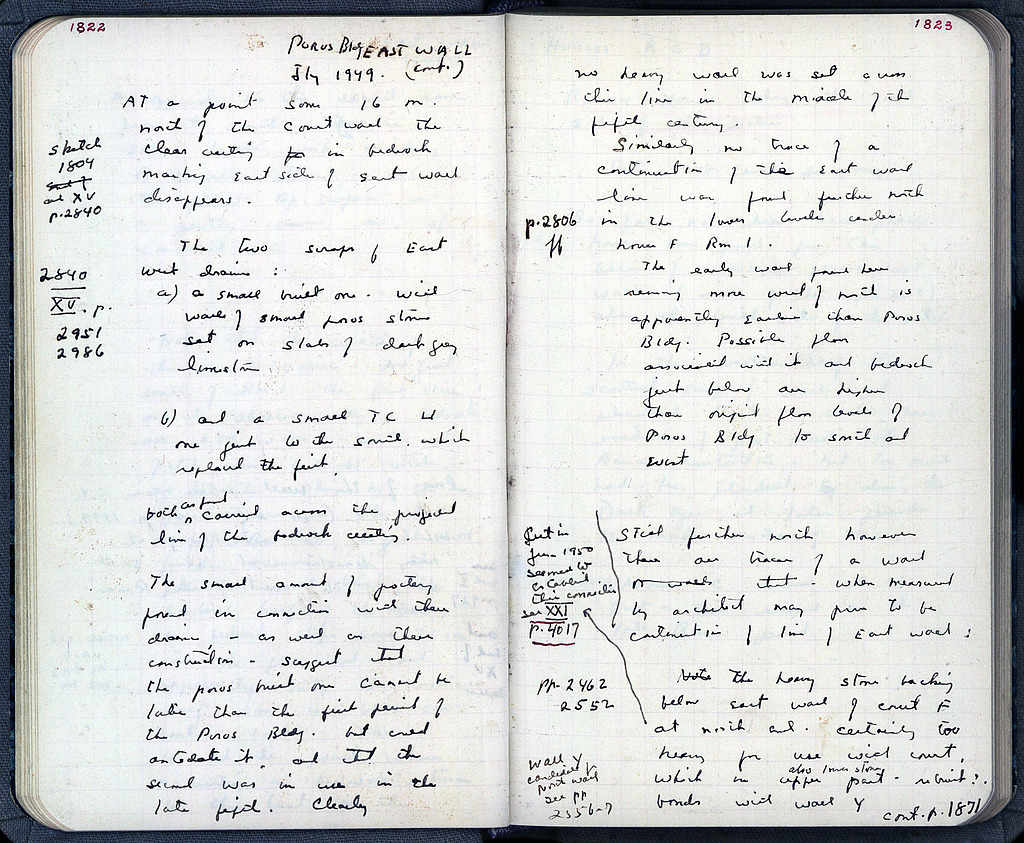 1822
Poros Bldg EAST WALL
Jly 1949. (cont.)
At a point some 16 m.
north of the Court wall the
sketch
1804
and XV
p. 2840
clear cutting in bedrock
marking East side of east wall
disappears.
The two scraps of East
west drains :
2840
XV. p.
2951
2986
a) a small built one. with
walls of small poros stones
set on slabs of dark gray
limestone
b) and a small TC
one just to the south. which
replaced the first.
both as found carried across the projected
line of the bedrock cutting
The small amount of pottery
found in connection with these
drains - as well as their
construction - suggest that
the poros built one cannot be
later than the first period of
the Poros Bldg. but could
antedate it, and that the
second was in use in the
late fifth. Clearly
1823
no heavy wall was set across
this line in the middle of the
fifth century.
Similarly no trace of a
continuation of the East wall
line was found further north
p. 2806
ff
in the lower levels under
house F Rm 1.
The early wall found here
running more west of north is
apparently earlier than Poros
Bldg. Possible floor
associated with it and bedrock
just below are higher
than original floor levels of
Poros Bldg. to south and
east
Still further north however
there are traces of a wall
or walls that - when measured
by architect may prove to be
continuation of line of East wall :
Cut in
June 1950
seemed to
establish
this connection
see XXI
p. 4017
pp. 2462
2552
Note the heavy stone backing
below east wall of court F
at north end. certainly too
heavy for use with court,
which in upper part - rebuilt?.
bonds with wall Y
wall Y
candidate for
north wall
see pp
2556-7
cont. p. 1871